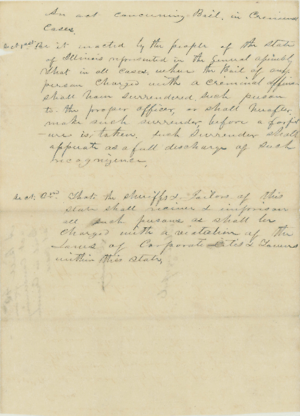 An act concerning Bail, in Criminal
Cases
Sect 1st Be it enacted by the people of the State
of Illinois represented in the General assembly
that in all Cases, where the Bail of any
person Charged with a criminal offence
shall have surrendered such person
to the proper officer, or shall hereafter
make such surrender before a forfeit
-ure is taken, such surrender shall
opperate as a full discharge of such
recognizence.
Sect. 2nd That the sheriffs & Jailors of this
State shall receive & imprison
all such persons as shall be
Charged with a violation of the
Laws of Corporate Cities & Towns
within this State,